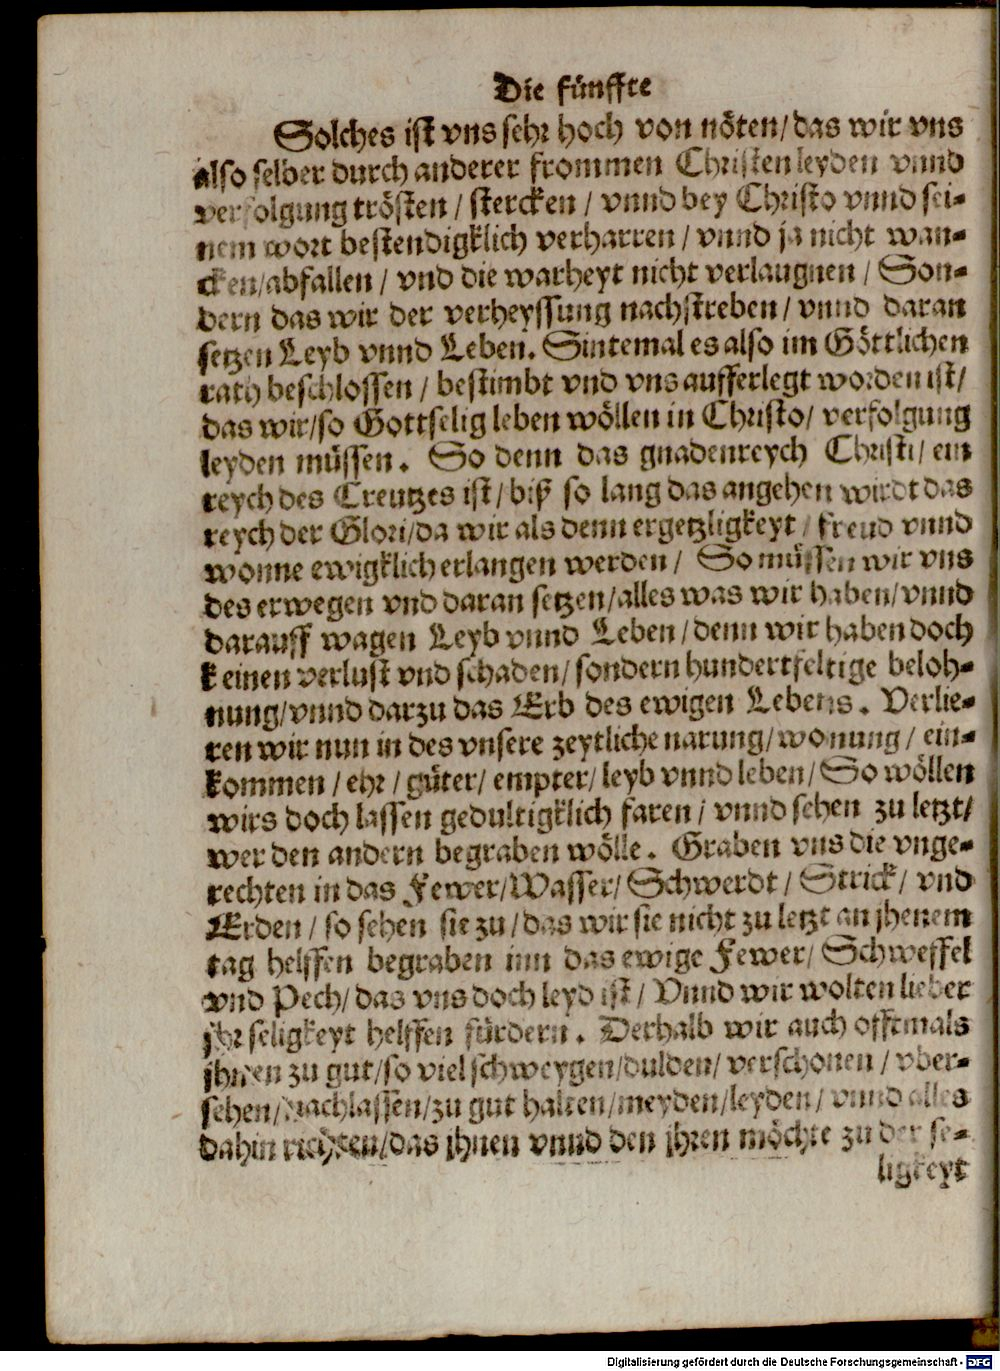 Die fünffte
Solches ist vns sehr hoch von nöten/ das wir vns
also selber durch anderer frommen Christen leyden vnnd
verfolgung trösten / stercken / vnnd bey Christo vnnd sei-
nem wort bestendigklich verharren / vnnd ja nicht wan-
cken/abfallen / vnd die warheyt nicht verlaugnen / Son-
dern das wir der verheyssung nachstreben / vnnd daran
setzen Leyb vnnd Leben. Sintemal es also im Göttlichen
rath beschlossen / bestimbt vnd vns aufferlegt worden ist/
das wir/so Gottselig leben wöllen in Christo/ verfolgung
leyden müssen. So denn das gnadenreych Christi/ ein
reych des Creutzes ist/ biß so lang das angehen wirdt das
reych der Glori/da wir als denn ergetzligkeyt / freud vnnd
wonne ewigklich erlangen werden / So müssen wir vns
des erwegen vnd daran setzen/alles was wir haben/vnnd
darauff wagen Leyb vnnd Leben/denn wir haben doch
keinen verlust vnd schaden/ sondern hundertfeltige beloh-
nung/vnnd darzu das Erb des ewigen Lebens. Verlie-
ren wir nun in des vnsere zeytliche narung/wonung / ein-
kommen / ehr / güter/ empter/ leyb vnnd leben/ So wöllen
wirs doch lassen gedultigklich faren / vnnd sehen zu letzt/
wer den andern begraben wölle. Graben vns die vnge-
rechten in das Fewer/Wasser/ Schwerdt / Strick/ vnd
Erden / so sehen sie zu / das wir sie nicht zu letzt an jhenem
tag helffen begraben inn das ewige Fewer/ Schweffel
vnd Pech/ das vns doch leyd ist/ Vnnd wir wolten lieber
jhr seligkeyt helffen fürdern. Derhalb wir auch offtmals
jhnen zu gut/so viel schweygen/dulden/ verschonen / vber-
sehen/nachlassen/zu gut halten/meyden/leyden/ vnnd alles
dahin richten/das jhnen vnnd den jhren möchte zu der se-
ligkeyt
Digitalisierung gefördert durch die Deutsche Forschungsgemeinschaft - DFG